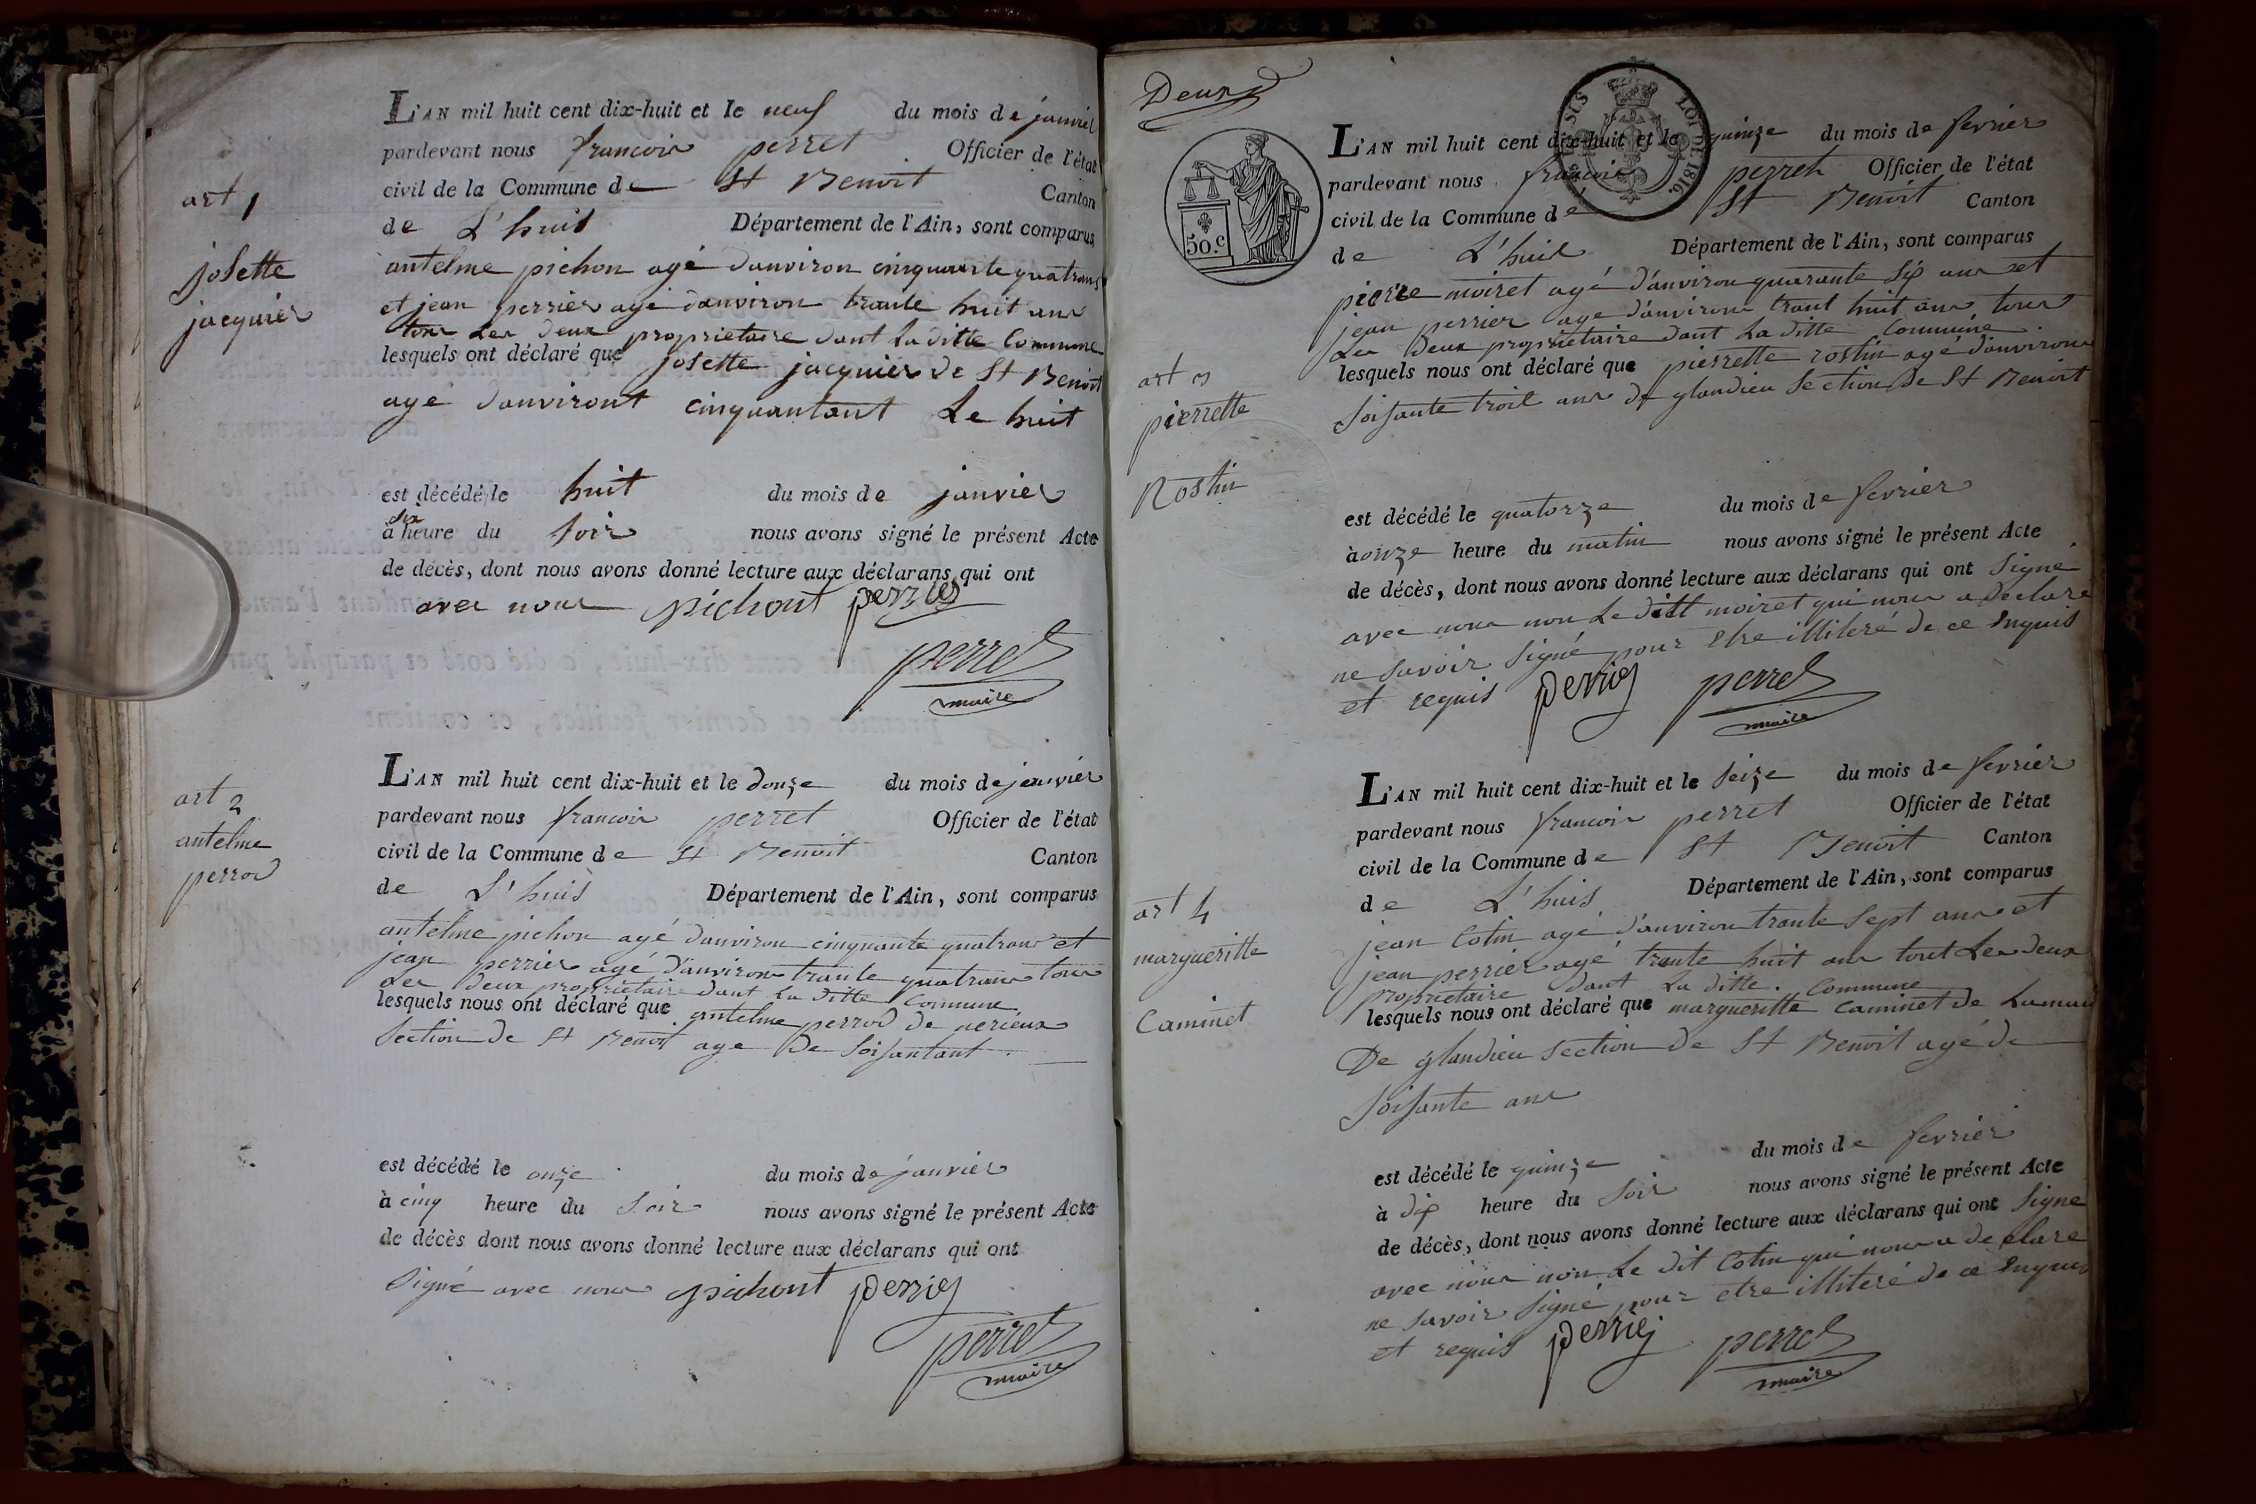 art 1
josette
jacquier
L'AN mil huit cent dix-huit et le neuf du mois de janvier
pardevant nous francois perret Officier de l'état
civil de la Commune de St Benoit Canton
de L'huis Département de l'Ain, sont comparus
antelme pichon agé danviron cinquante quatrans
et jean perrier agé danviron trante huit ans
tous Les deux proprietaire dant La ditte Commune
lesquels ont déclaré que josette jacquier de St Benoit
age danviront cinquantant Le huit
est décédé le huit du mois de janvier
à six heure du soir nous avons signé le présent Acte
de décès, dont nous avons donné lecture aux déclarans qui ont
avec nous pichont perrier
perret
maire
art 2
antelme
perrod
L'AN mil huit cent dix-huit et le douze du mois de janvier
pardevant nous francois perret Officier de l'état
civil de la Commune de St Benoit Canton
de L'huis Département de l'Ain, sont comparus
antelme pichon agé danviron cinquante quatrans et
jean perrier agé d'anviron trante quatrans tous
Les deux proprietaire dant La ditte Commune
lesquels nous ont déclaré que antelme perrod de perieux
Section de St Benoit age De Soisantant
est décédé le onze du mois de janvier
à cinq heure du Soir nous avons signé le présent Acte
de décès dont nous avons donné lecture aux déclarans qui ont
Signé avec nous pichont perrier
perret
maire
Deux
50.c
SUS LOI DE 1816.
L'AN mil huit cent dix-huit et le quinze du mois de fevrier
pardevant nous francois perret Officier de l'état
civil de la Commune de St Benoit Canton
de L'huis Département de l'Ain, sont comparus
pierre moiret agé d'anviron quarante Six ans et
jean perrier age d'anviron trant huit ans tous
Les Deux proprietaire dant La ditte Commune
lesquels nous ont déclaré que pierrette rostin agé d'anviron
Soisante trois ans de glandieu Section de St Benoit
art 3
pierrette
Rostin
est décédé le quatorze du mois de fevrier
à onze heure du matin nous avons signé le présent Acte
de décès, dont nous avons donné lecture aux déclarans qui ont Signé
avec nous non Le ditt moiret qui nous a Déclaré
ne savoir Signé pour Etre illiteré de ce Enquis
et requis perrier perret
maire
L'AN mil huit cent dix-huit et le Seize du mois de fevrier
pardevant nous francois perret Officier de l'état
civil de la Commune de St Benoit Canton
de L'huis Département de l'Ain, sont comparus
jean Cotin agé d'anviron trante Sept ans et
jean perrier agé trante huit ans tout Les deux
proprietaire dant La ditte Commune
lesquels nous ont déclaré que margueritte Caminet de
De glandieu Section de St Benoit agé de
Soisante ans
art 4
margueritte
Caminet
est décédé le quinze du mois de fevrier
à dix heure du Soir nous avons signé le présent Acte
de décès, dont nous avons donné lecture aux déclarans qui ont Signé
avec nous non Le dit Cotin qui nous a declare
ne Savoir Signé pour etre illiteré de ce Enquis
et requis perrier perret
maire